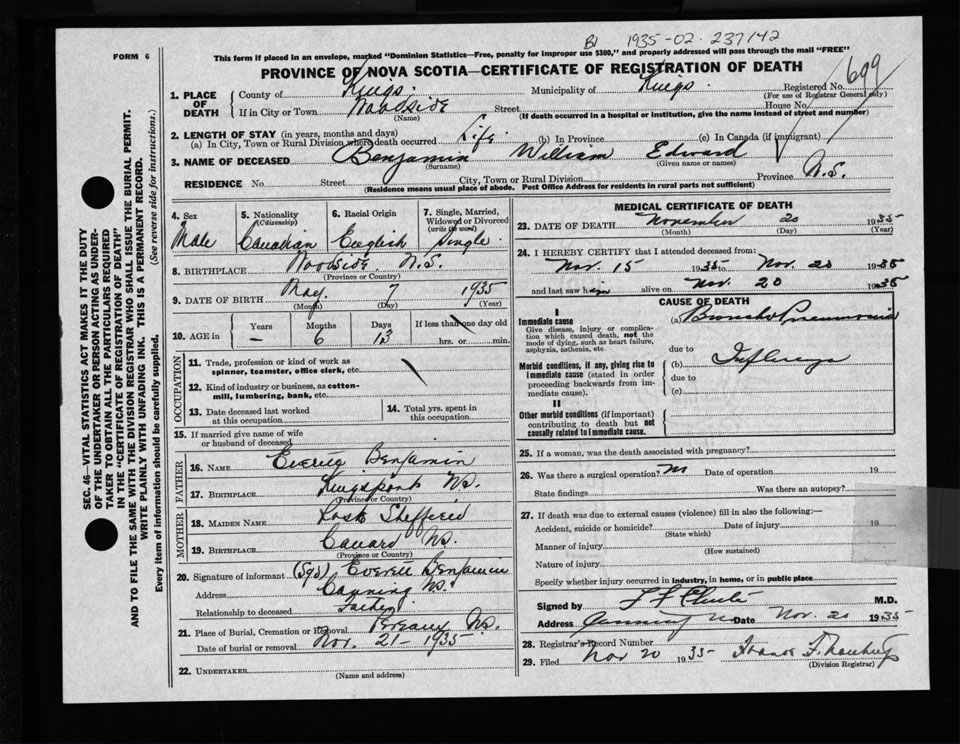 B1 1935-02-237142
FORM 6
This form if placed in an envelope, marked "Dominion Statistics—Free, penalty for improper use $300," and properly addressed will pass through the mail "FREE"
PROVINCE OF NOVA SCOTIA—CERTIFICATE OF REGISTRATION OF DEATH
1. PLACE OF DEATH
County of Kings. Municipality of Kings. Registered No. 699
(For use of Registrar General only)
If in City or Town Woodside Street House No.
(Name) (If death occurred in a hospital or institution, give the name instead of street and number)
2. LENGTH OF STAY (in years, months and days)
(a) In City, Town or Rural Division where death occurred Life (b) In Province (c) In Canada (if immigrant)
3. NAME OF DECEASED Benjamin William Edward
(Surname) (Given name or names)
RESIDENCE No. Street City, Town or Rural Division Province N.S.
(Residence means usual place of abode. Post Office Address for residents in rural parts not sufficient)
4. Sex
Male
5. Nationality
(Citizenship)
Canadian
6. Racial Origin
English
7. Single, Married, Widowed or Divorced
(write the word)
Single
8. BIRTHPLACE Woodside N.S.
(Province or Country)
9. DATE OF BIRTH May 7 1935
(Month) (Day) (Year)
10. AGE in
Years Months Days If less than one day old
– 6 13 hrs. or min.
OCCUPATION
11. Trade, profession or kind of work as spinner, teamster, office clerk, etc.
12. Kind of industry or business, as cotton-mill, lumbering, bank, etc.
13. Date deceased last worked at this occupation
14. Total yrs. spent in this occupation
15. If married give name of wife or husband of deceased
FATHER
16. NAME Benjamin
17. BIRTHPLACE Kingsport NS.
(Province or Country)
MOTHER
18. MAIDEN NAME
19. BIRTHPLACE Canard NS.
(Province or Country)
20. Signature of informant (Sgd) Everett Benjamin
Address Canning NS.
Relationship to deceased Father
21. Place of Burial, Cremation or Removal NS.
Date of burial or removal Nov. 21 - 1935
22. UNDERTAKER
(Name and address)
MEDICAL CERTIFICATE OF DEATH
23. DATE OF DEATH November 20 1935
(Month) (Day) (Year)
24. I HEREBY CERTIFY that I attended deceased from:
Nov. 15 1935 to Nov. 20 1935
and last saw him alive on Nov. 20 1935
CAUSE OF DEATH
I
Immediate cause
Give disease, injury or complication which caused death, not the mode of dying, such as heart failure, asphyxia, asthenia, etc.
(a) Broncho Pneumonia
due to
Morbid conditions, if any, giving rise to immediate cause (stated in order proceeding backwards from immediate cause).
(b) Influenza
due to
(c)
II
Other morbid conditions (if important) contributing to death but not causally related to immediate cause.
25. If a woman, was the death associated with pregnancy?
26. Was there a surgical operation? No Date of operation 19
State findings Was there an autopsy?
27. If death was due to external causes (violence) fill in also the following:—
Accident, suicide or homicide? Date of injury 19
(State which)
Manner of injury
(How sustained)
Nature of injury
Specify whether injury occurred in industry, in home, or in public place
Signed by M.D.
Address Canning Date Nov. 20 1935
28. Registrar's Record Number
29. Filed Nov 20 1935
(Division Registrar)
SEC. 46—VITAL STATISTICS ACT MAKES IT THE DUTY
OF THE UNDERTAKER OR PERSON ACTING AS UNDER-
TAKER TO OBTAIN ALL THE PARTICULARS REQUIRED
IN THE "CERTIFICATE OF REGISTRATION OF DEATH"
AND TO FILE THE SAME WITH THE DIVISION REGISTRAR WHO SHALL ISSUE THE BURIAL PERMIT.
WRITE PLAINLY WITH UNFADING INK. THIS IS A PERMANENT RECORD.
Every item of information should be carefully supplied. (See reverse side for instructions.)